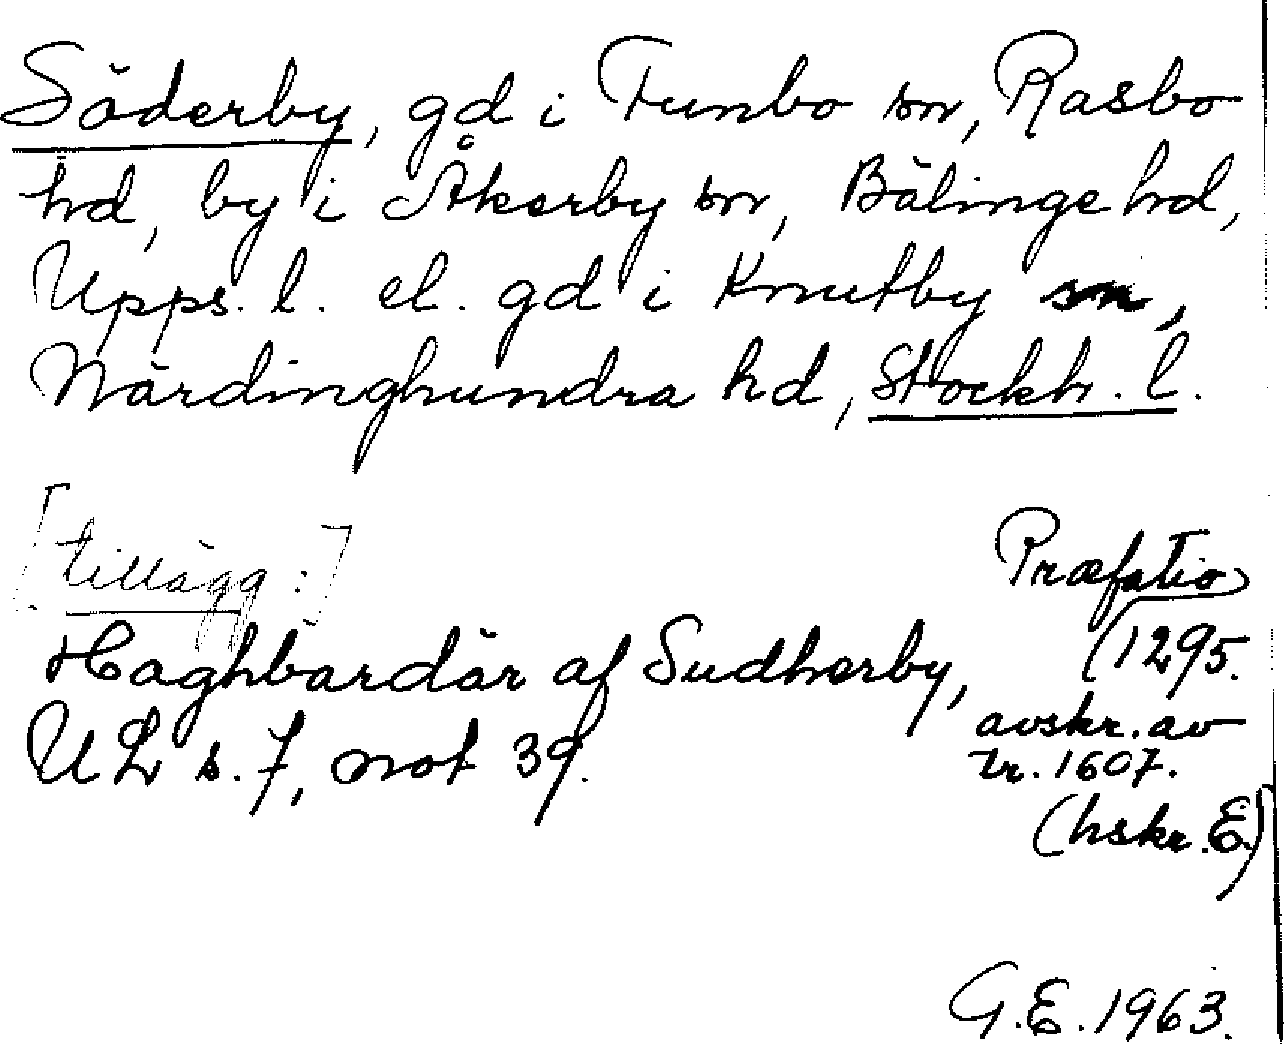 Söderby, gd i Funbo sn, Rasbo
hd, by i Åkerby sn, Bälinge hd,
Upps. l. el. gd i Knutby sn,
Närdinghundra hd, Stockh. l.
[tillägg:]
Haghbardär af Sudherby,
UL s. 7, not 39.
Præfatio
(1295.
avskr. av
tr. 1607.
(hskr. E)
G.E. 1963.